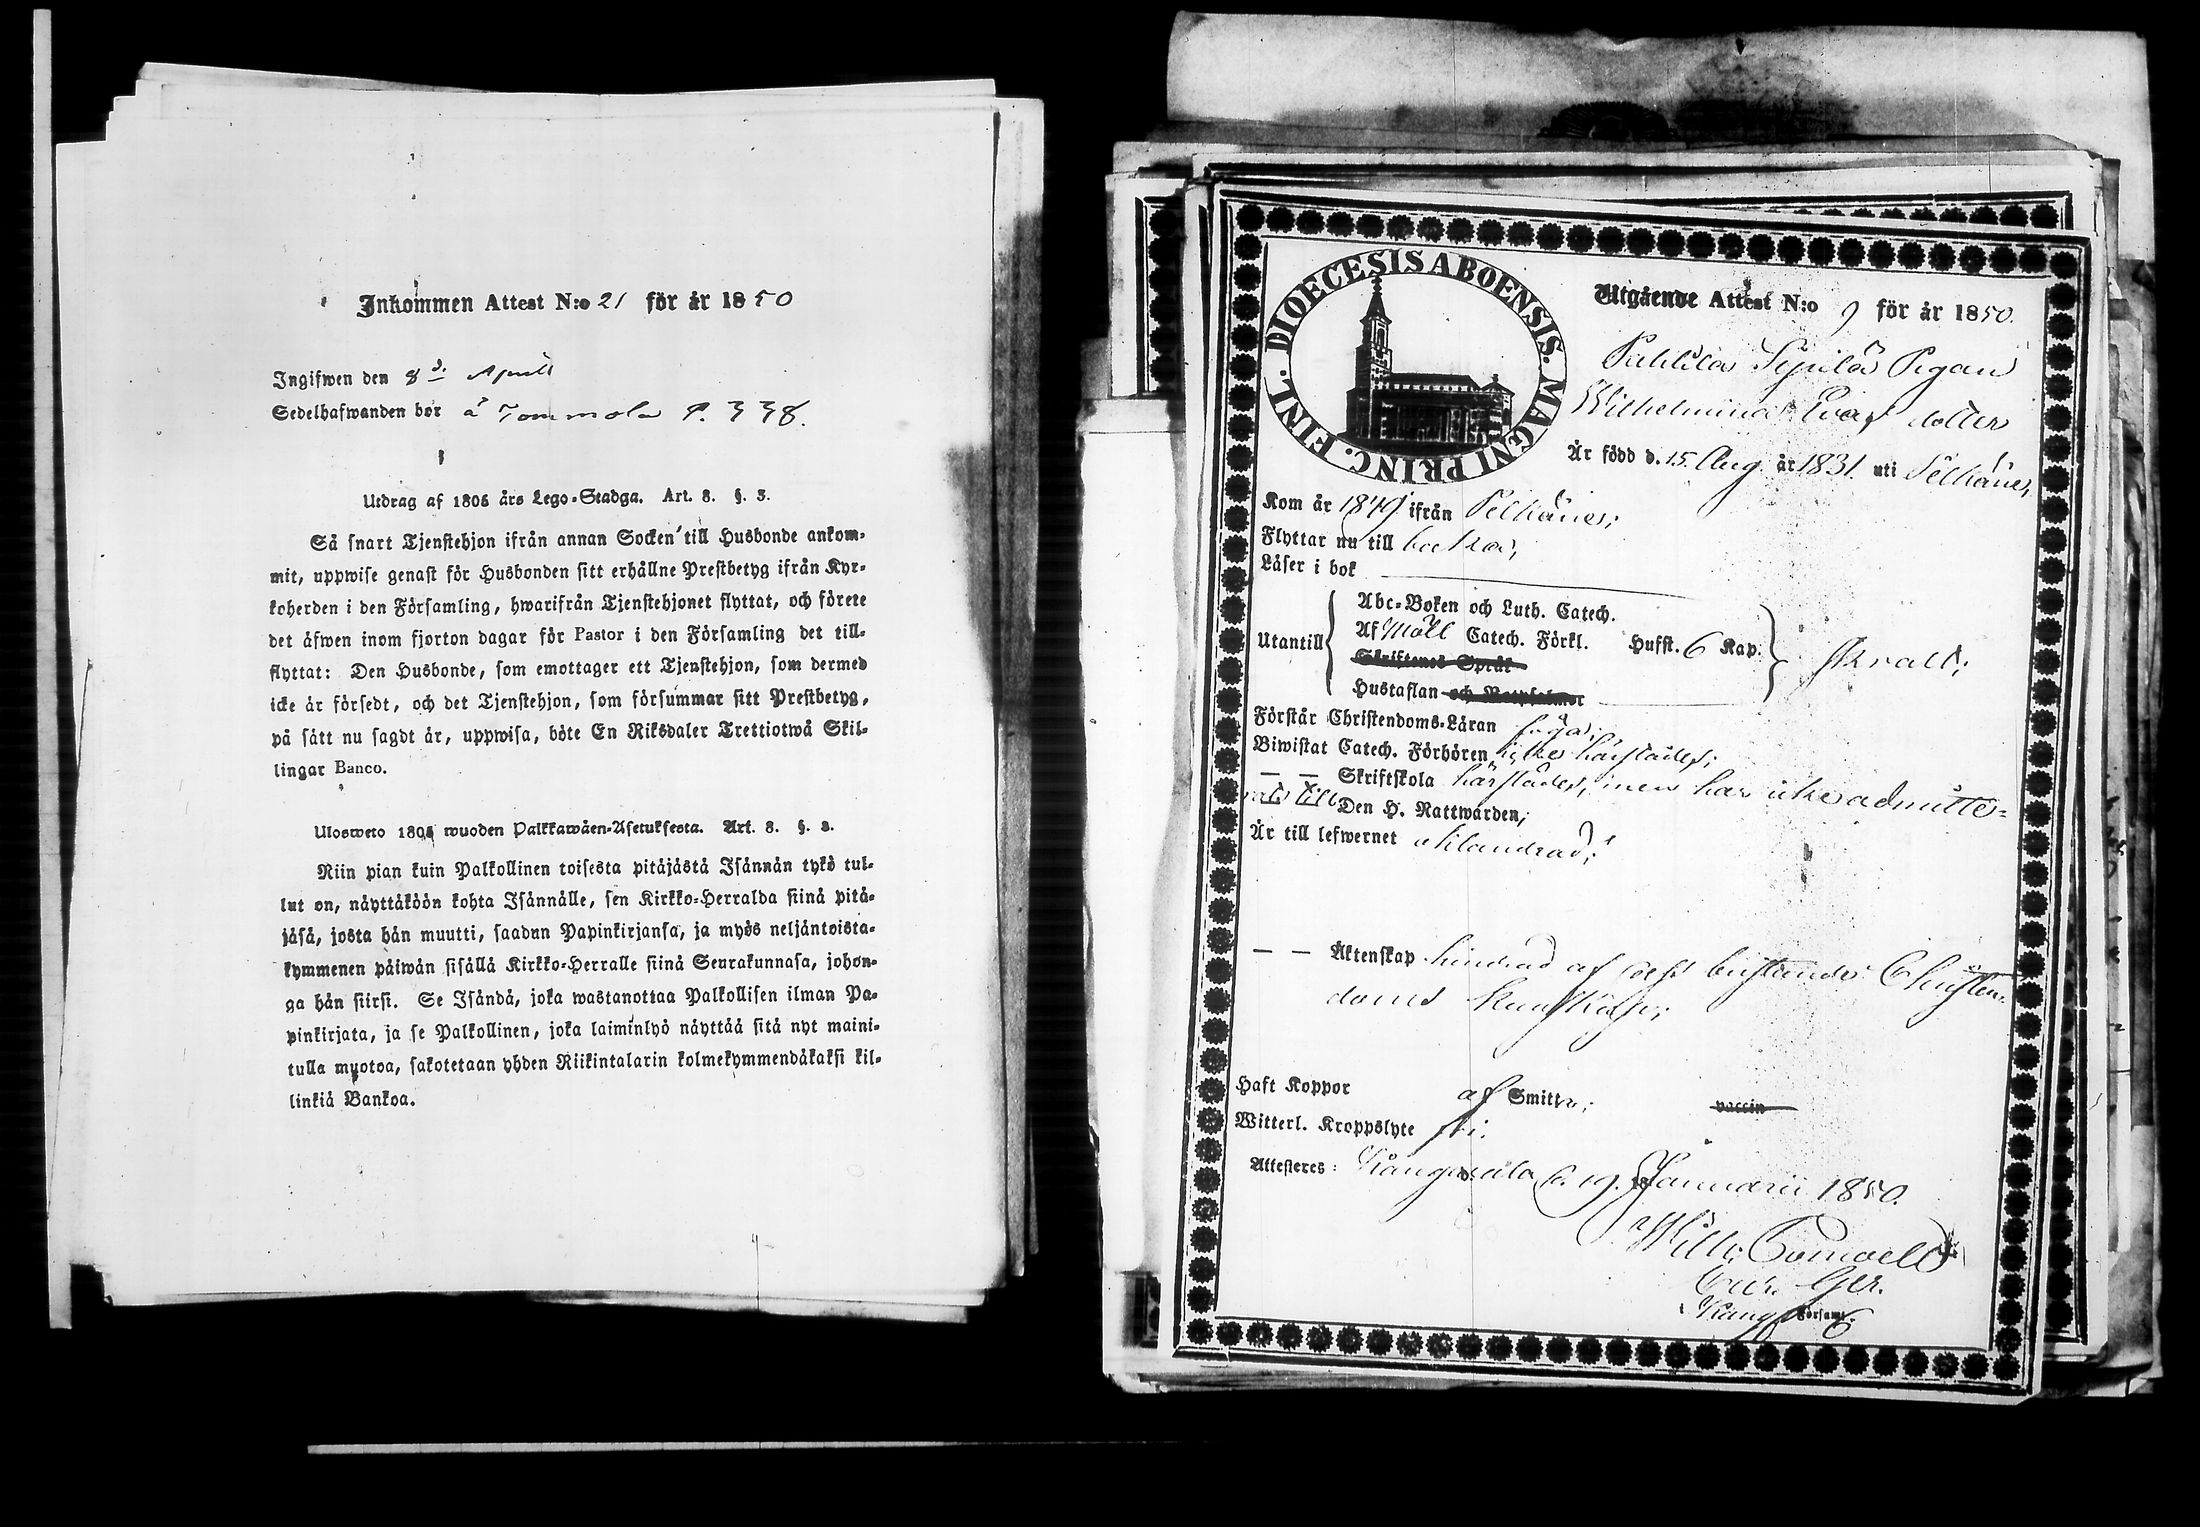 Inkommen Attest N:o 21 för år 1850
Ingifwen den 8de April
Sedelhafwanden bor å Tommola P. 338.
Utdrag af 1805 års Lego-Stadga. Art. 8. §. 3.
Så snart Tjenstehjon ifrån annan Socken till Husbonde ankom-
mit, uppwise genast för Husbonden sitt erhållne Prestbetyg ifrån Kyr-
koherden i den Församling, hwarifrån Tjenstehjonet flyttat, och förete
det åfwen inom fjorton dagar för Pastor i den Församling det till-
flyttat: Den Husbonde, som emottager ett Tjenstehjon, som dermed
icke är försedt, och det Tjenstehjon, som försummar sitt Prestbetyg,
på sätt nu sagdt är, uppwisa, böte En Riksdaler Trettiotwå Skil-
lingar Banco.
Ulosweto 1805 wuoden Palkkawäen-Asetuksesta. Art. 8. §. 3.
Niin pian kuin Palkollinen toisesta pitäjästä Isännän tykö tul-
lut on, näyttäköön kohta Isännälle, sen Kirkko-Herralda siinä pitä-
jäsä, josta hän muutti, saadun Papinkirjansa, ja myös neljäntoista-
kymmenen päiwän sisällä Kirkko-Herralle siinä Seurakunnasa, johon-
ga hän siirsi. Se Isändä, joka wastanottaa Palkollisen ilman Pa-
pinkirjata, ja se Palkollinen, joka laiminlyö näyttää sitä nyt maini-
tulla muotoa, sakotetaan yhden Riikintalarin kolmekymmendäkaksi kil-
linkiä Bankoa.
DIOECESIS ABOENSIS. MAGNI PRINC. FINL.
Utgående Attest N:o 9 för år 1850.
Sipilä Pigan
Wilhelmina Evas dotter
Är född d. 15. Aug. år 1831. uti Pelkäne,
Kom år 1849 ifrån Pelkäne;
Flyttar nu till
Läser i bok
Abc-Boken och Luth. Catech.
Utantill Af Möll Catech. Förkl. Husst. 6 Kap. svalt;
Skriftenes Språk
Hustaflan och Botpsalmer
Förstår Christendoms-Läran
Biwistat Catech. Förhören icke härstädes;
— — Skriftskola härstädes, men har icke admitte-
rats till Den H. Nattwarden;
Är till lefwernet oklandrad;
— — Äktenskap hindrad af bristande Christen-
doms kunskap;
Haft Koppor af Smitta; vaccin
Witterl. Kroppslyte fri.
Attesteres: Kangasala d. 19. Januarii 1850.
Församl.